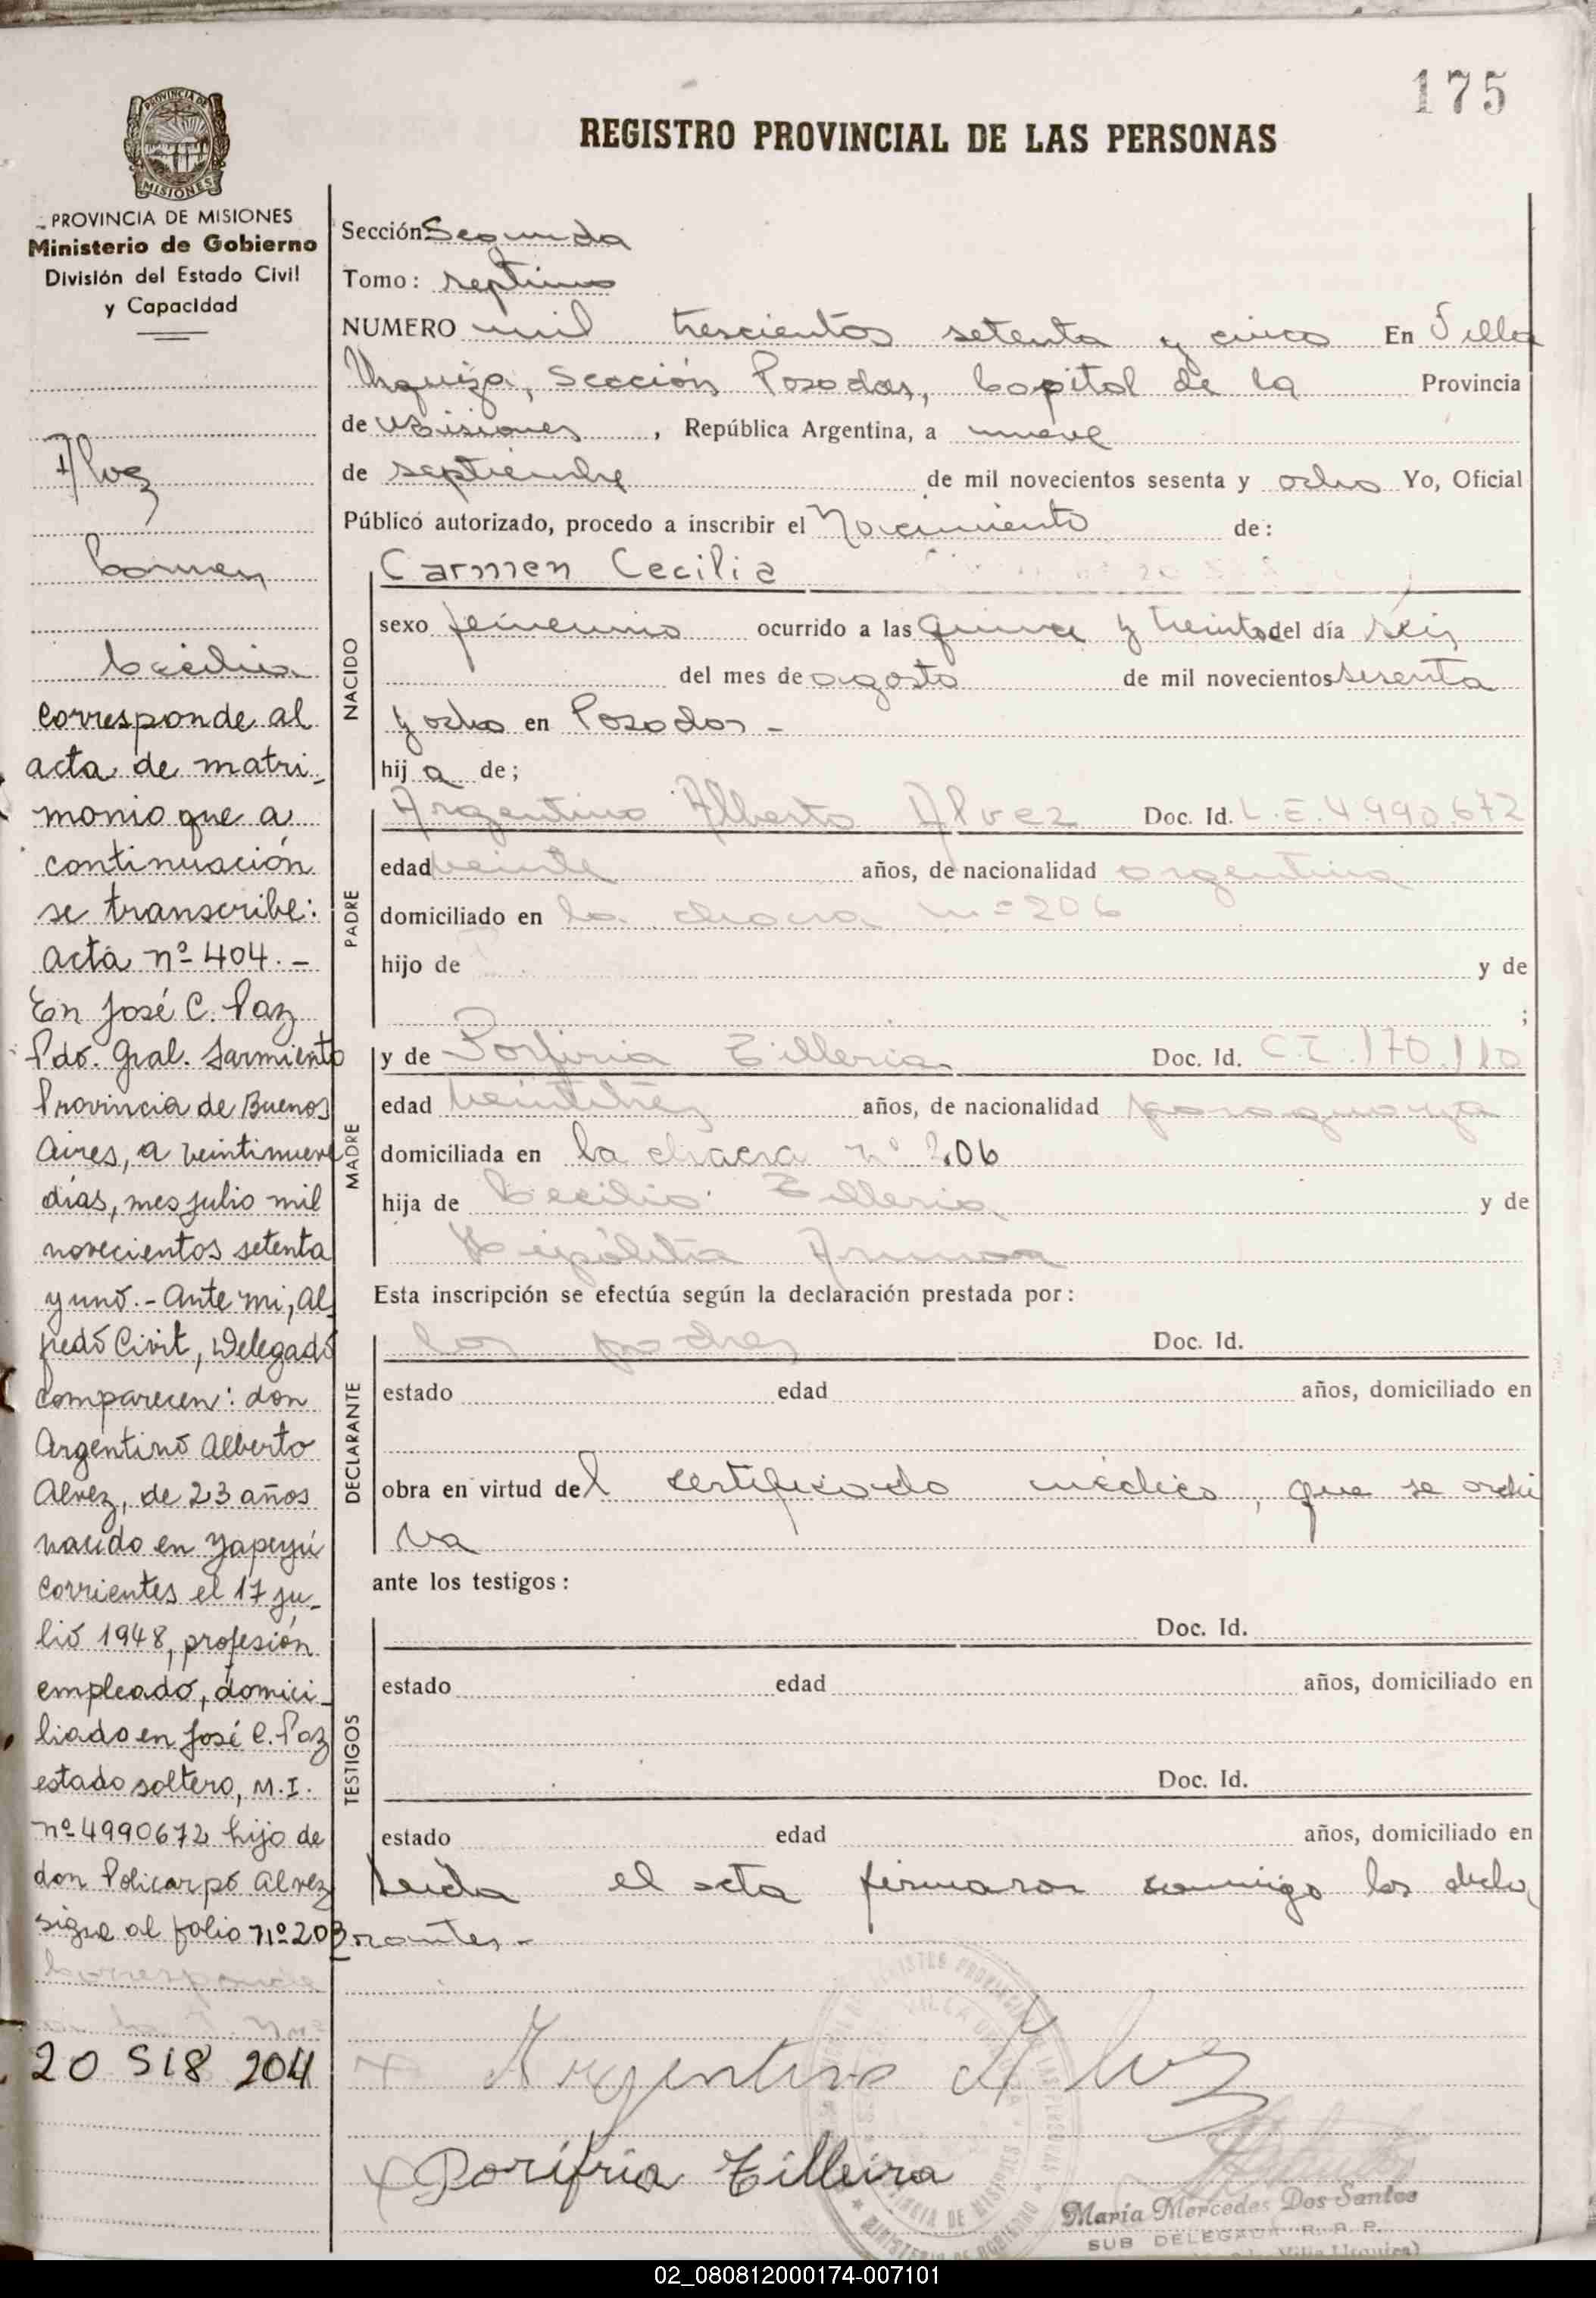 175
REGISTRO PROVINCIAL DE LAS PERSONAS
PROVINCIA DE MISIONES
PROVINCIA DE MISIONES
Ministerio de Gobierno
División del Estado Civil
y Capacidad
Alvez
Carmen
Cecilia
Corresponde al
acta de matri-
monio que a
continuación
se transcribe:
Acta nº 404.-
En José C. Paz
Pdo. Gral. Sarmiento
Provincia de Buenos
Aires, a veintinueve
días, mes julio mil
novecientos setenta
y uno.- Ante mi, Al-
fredo Civit, Delegado
Comparecen: don
Argentino Alberto
Alvez, de 23 años
nacido en Yapeyú
Corrientes el 17 ju-
lio 1948, profesión
empleado, domici-
liado en José C. Paz
estado soltero, M.I.
nº 4990672 hijo de
don Policarpo Alvez
sigue al folio nº 203
Corresponde
20 518 204
Sección Segunda
Tomo: septimo
NUMERO mil trescientos setenta y cinco En Villa
Urquiza, Sección Posadas, Capital de la Provincia
de Misiones, República Argentina, a nueve
de septiembre de mil novecientos sesenta y ocho Yo, Oficial
Público autorizado, procedo a inscribir el Nacimiento de:
NACIDO
Carmen Cecilia
sexo femenino ocurrido a las quince y treinta del día seis
del mes de agosto de mil novecientos sesenta
y ocho en Posadas -
hija de;
PADRE
Argentino Alberto Alvez Doc. Id. L.E.4.990.672
edad veinte años, de nacionalidad argentina
domiciliado en la chacra nº 206
hijo de y de
;
MADRE
y de Porfiria Tilleria Doc. Id. C.I.170.110
edad veintitrés años, de nacionalidad paraguaya
domiciliada en la chacra nº 206
hija de Cecilio Tilleria y de
Hipólita
Esta inscripción se efectúa según la declaración prestada por:
DECLARANTE
los padres Doc. Id.
estado edad años, domiciliado en
obra en virtud del certificado médico, que se archi
va
ante los testigos:
TESTIGOS
Doc. Id.
estado edad años, domiciliado en
Doc. Id.
estado edad años, domiciliado en
Leida el acta firmaron conmigo los decla
rantes.-
Argentino Alvez
Porifria Tilleira
María Mercedes Dos Santos
SUB DELEGADA R. P. P.
02_080812000174-007101